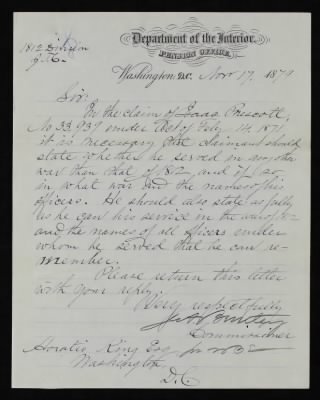 Department of the Interior,
PENSION OFFICE,
1812 Division
Washington, D.C. Nov 17, 1879
Sir:
In the claim of Isaac Prescott,
No 33,939 under Act of Feby 14, 1871
it is necessary that claimant should
state whether he served in any other
war than that of 1812, and if so
in what war and the names of his
officers. He should also state as fully
as he can his service in the war of 1812
and the names of all officers under
whom he served that he can re-
member.
Please return this letter
with your reply.
Very respectfully
Commissioner
Horatio King Esq
Washington,
D.C.